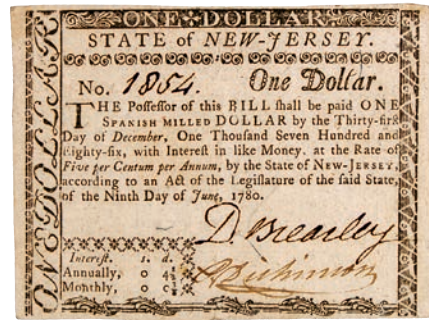 ONE DOLLAR
STATE of NEW-JERSEY.
ONE DOLLAR
No. 1854. One Dollar.
THE Poſſeſſor of this BILL ſhall be paid ONE
SPANISH MILLED DOLLAR by the Thirty-firſt
Day of December, One Thouſand Seven Hundred and
Eighty-ſix, with Intereſt in like Money, at the Rate of
Five per Centum per Annum, by the State of NEW-JERSEY,
according to an Act of the Legiſlature of the ſaid State,
of the Ninth Day of June, 1780.
D. Brearley
Intereſt. s. d.
Annually, 0 4½
Monthly, 0 0